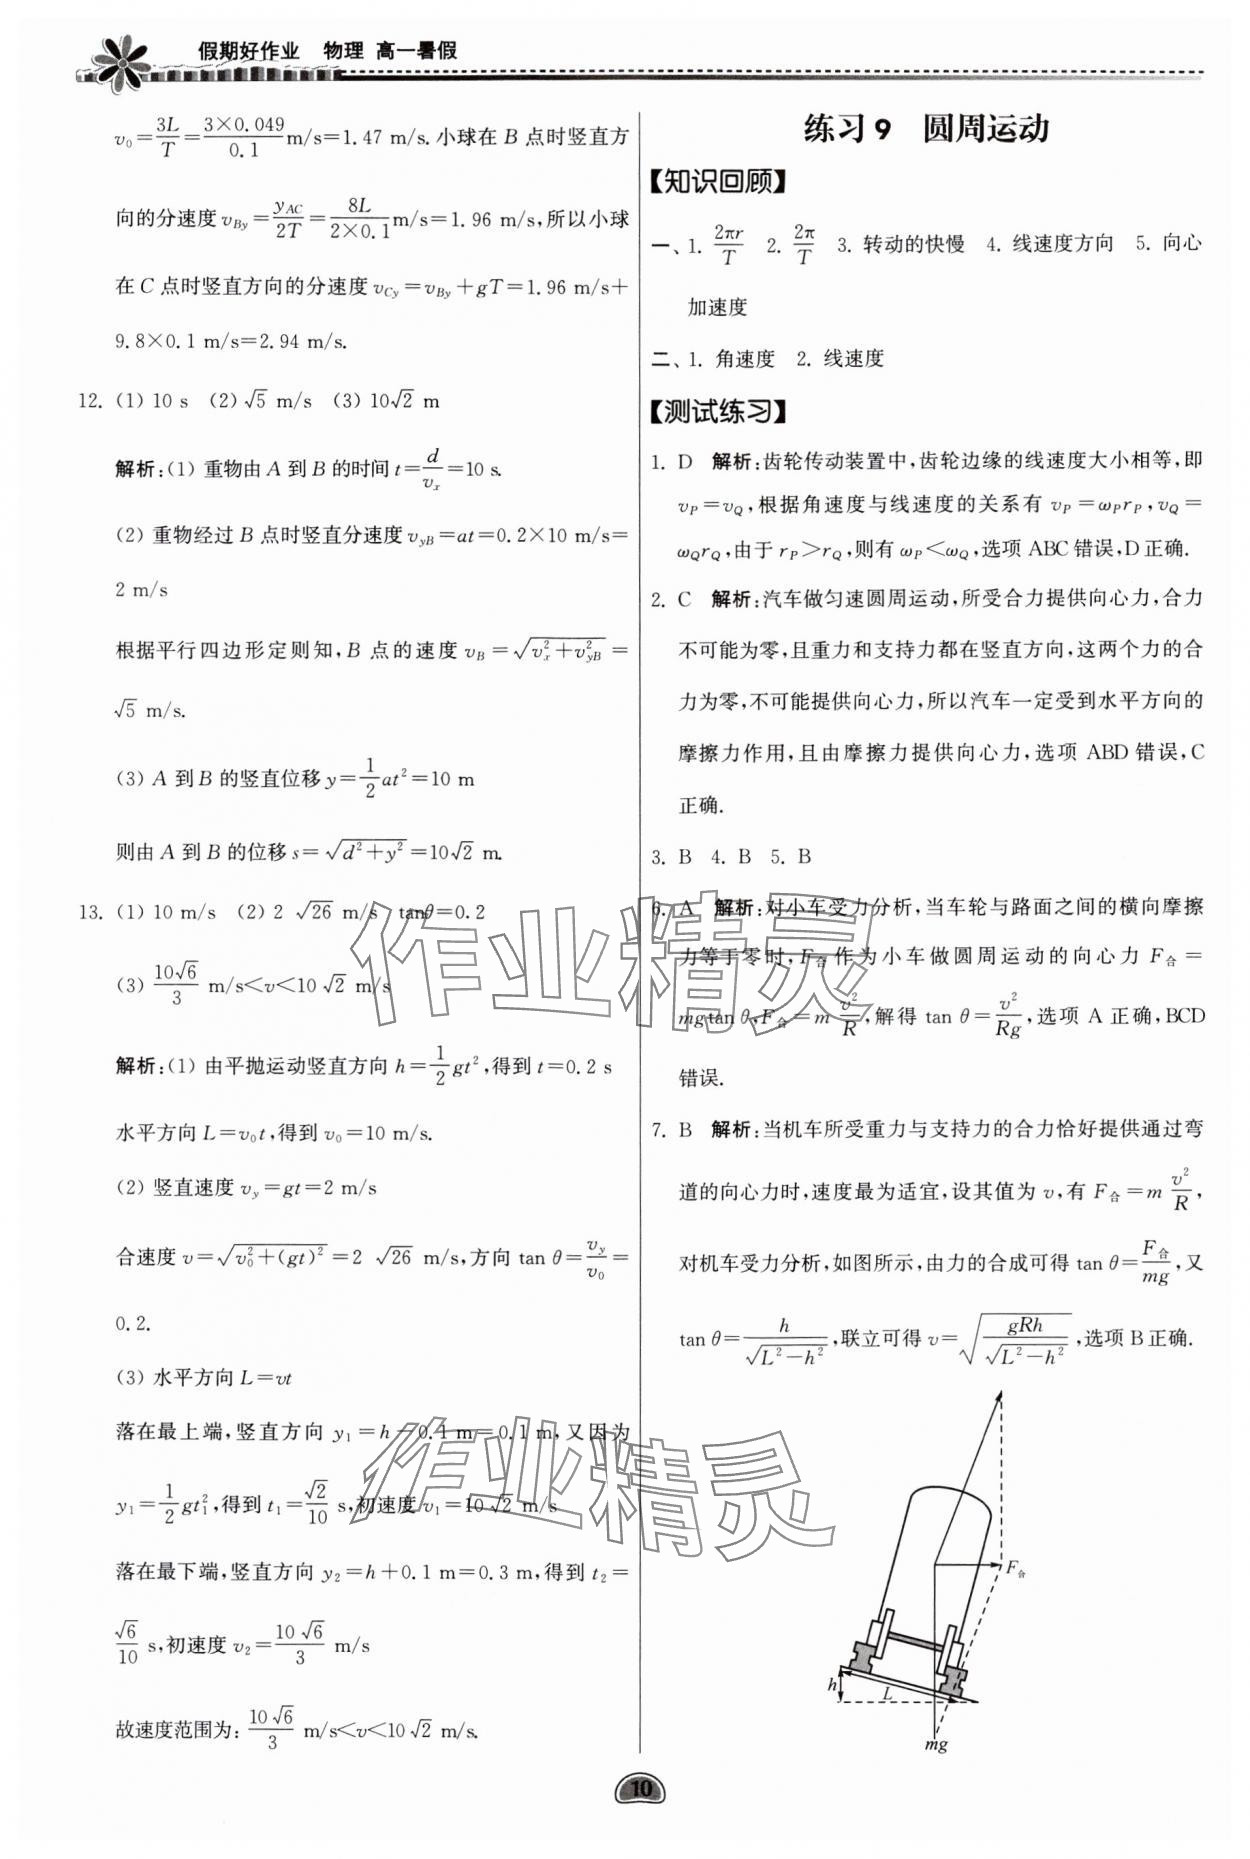 假期好作业 物理 高一暑假
v₀=3L/T=3×0.049/0.1 m/s=1.47 m/s.小球在 B 点时竖直方
向的分速度 v_By=y_AC/2T=8L/2×0.1 m/s=1.96 m/s,所以小球
在 C 点时竖直方向的分速度 v_Cy=v_By+gT=1.96 m/s+
9.8×0.1 m/s=2.94 m/s.
12. (1) 10 s (2) √5 m/s (3) 10√2 m
解析:(1) 重物由 A 到 B 的时间 t=d/v_x=10 s.
(2) 重物经过 B 点时竖直分速度 v_yB=at=0.2×10 m/s=
2 m/s
根据平行四边形定则知,B 点的速度 v_B=√(v_x²+v_yB²)=
√5 m/s.
(3) A 到 B 的竖直位移 y=1/2 at²=10 m
则由 A 到 B 的位移 s=√(d²+y²)=10√2 m.
13. (1) 10 m/s (2) 2 √26 m/s tanθ=0.2
(3) 10√6/3 m/s<v<10 √2 m/s
解析:(1) 由平抛运动竖直方向 h=1/2 gt²,得到 t=0.2 s
水平方向 L=v₀t,得到 v₀=10 m/s.
(2) 竖直速度 v_y=gt=2 m/s
合速度 v=√(v₀²+(gt)²)=2 √26 m/s,方向 tan θ=v_y/v₀=
0.2.
(3) 水平方向 L=vt
落在最上端,竖直方向 y₁=h-0.1 m=0.1 m,又因为
y₁=1/2 gt₁²,得到 t₁=√2/10 s,初速度 v₁=10 √2 m/s
落在最下端,竖直方向 y₂=h+0.1 m=0.3 m,得到 t₂=
√6/10 s,初速度 v₂=10 √6/3 m/s
故速度范围为: 10 √6/3 m/s<v<10 √2 m/s.
练习 9 圆周运动
【知识回顾】
一、1. 2πr/T 2. 2π/T 3. 转动的快慢 4. 线速度方向 5. 向心
加速度
二、1. 角速度 2. 线速度
【测试练习】
1. D 解析:齿轮传动装置中,齿轮边缘的线速度大小相等,即
v_P=v_Q,根据角速度与线速度的关系有 v_P=ω_P r_P,v_Q=
ω_Q r_Q,由于 r_P>r_Q,则有 ω_P<ω_Q,选项 ABC 错误,D 正确.
2. C 解析:汽车做匀速圆周运动,所受合力提供向心力,合力
不可能为零,且重力和支持力都在竖直方向,这两个力的合
力为零,不可能提供向心力,所以汽车一定受到水平方向的
摩擦力作用,且由摩擦力提供向心力,选项 ABD 错误,C
正确.
3. B 4. B 5. B
6. A 解析:对小车受力分析,当车轮与路面之间的横向摩擦
力等于零时,F合作为小车做圆周运动的向心力 F合=
mgtan θ,F合=m v²/R,解得 tan θ=v²/Rg,选项 A 正确,BCD
错误.
7. B 解析:当机车所受重力与支持力的合力恰好提供通过弯
道的向心力时,速度最为适宜,设其值为 v,有 F合=m v²/R,
对机车受力分析,如图所示,由力的合成可得 tan θ=F合/mg,又
tan θ=h/√(L²-h²),联立可得 v=√(gRh/√(L²-h²)),选项 B 正确.
F合
h
L
mg
10
作业精灵
作业精灵